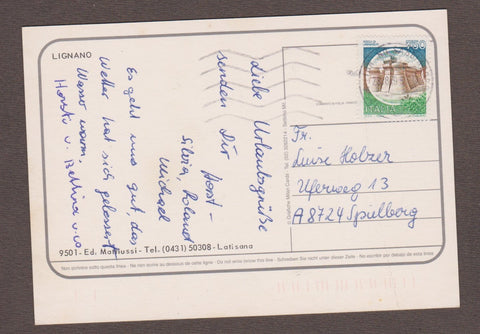 LIGNANO
Liebe Urlaubsgrüße
senden Dir Horst –
Silvia, Roland
Michael
Es geht uns gut, das
Wetter hat sich gebessert
Wasser warm.
Horsti u. Bettina
9501 - Ed. - Tel. (0431) 50308 - Latisana
Non scrivere sotto questa linea - Ne rien écrire au dessous de cette ligne - Do not write below this line - Schreiben Sie nicht unter dieser Zeile - No escribir por debajo de esta línea
750
ITALIA
Fr.
Luise Holzer
Uferweg 13
A 8724 Spielberg